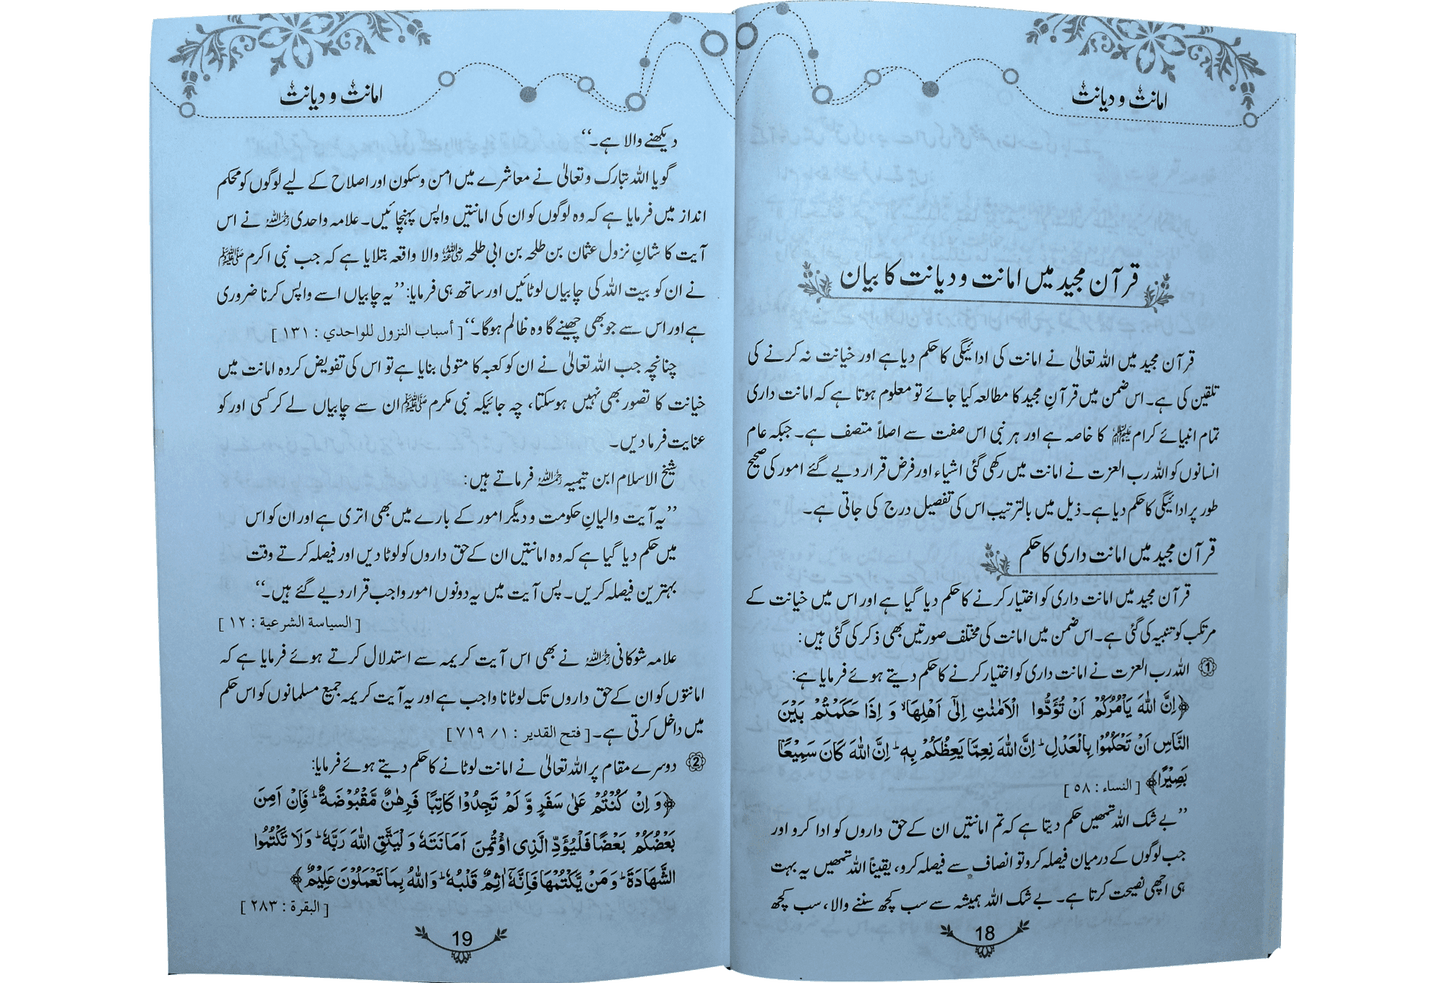 امانت و دیانت
قرآن مجید میں امانت و دیانت کا بیان
قرآن مجید میں اللہ تعالیٰ نے امانت کی ادائیگی کا حکم دیا ہے اور خیانت نہ کرنے کی
تلقین کی ہے۔ اس ضمن میں قرآنِ مجید کا مطالعہ کیا جائے تو معلوم ہوتا ہے کہ امانت داری
تمام انبیائے کرام علیہم السلام کا خاصہ ہے اور ہر نبی اس صفت سے اصلاً متصف ہے۔ جبکہ عام
انسانوں کو اللہ رب العزت نے امانت میں رکھی گئی اشیاء اور فرض قرار دیے گئے امور کی صحیح
طور پر ادائیگی کا حکم دیا ہے۔ ذیل میں بالترتیب اس کی تفصیل درج کی جاتی ہے۔
قرآن مجید میں امانت داری کا حکم
قرآن مجید میں امانت داری کو اختیار کرنے کا حکم دیا گیا ہے اور اس میں خیانت کے
مرتکب کو تنبیہ کی گئی ہے۔ اس ضمن میں امانت کی مختلف صورتیں بھی ذکر کی گئی ہیں:
① اللہ رب العزت نے امانت داری کو اختیار کرنے کا حکم دیتے ہوئے فرمایا ہے:
﴿اِنَّ اللّٰهَ يَاْمُرُكُمْ اَنْ تُؤَدُّوا الْاَمٰنٰتِ اِلٰٓى اَهْلِهَا ۙ وَ اِذَا حَكَمْتُمْ بَيْنَ
النَّاسِ اَنْ تَحْكُمُوْا بِالْعَدْلِ ؕ اِنَّ اللّٰهَ نِعِمَّا يَعِظُكُمْ بِهٖ ؕ اِنَّ اللّٰهَ كَانَ سَمِيْعًۢا
بَصِيْرًا﴾ [النساء : ٥٨]
’’بے شک اللہ تمھیں حکم دیتا ہے کہ تم امانتیں ان کے حق داروں کو ادا کرو اور
جب لوگوں کے درمیان فیصلہ کرو تو انصاف سے فیصلہ کرو، یقیناً اللہ تمھیں یہ بہت
ہی اچھی نصیحت کرتا ہے۔ بے شک اللہ ہمیشہ سے سب کچھ سننے والا، سب کچھ
18
امانت و دیانت
دیکھنے والا ہے۔‘‘
گویا اللہ تبارک و تعالیٰ نے معاشرے میں امن و سکون اور اصلاح کے لیے لوگوں کو محکم
انداز میں فرمایا ہے کہ وہ لوگوں کو ان کی امانتیں واپس پہنچائیں۔ علامہ واحدی رحمہ اللہ نے اس
آیت کا شانِ نزول عثمان بن طلحہ بن ابی طلحہ رضی اللہ عنہ والا واقعہ بتلایا ہے کہ جب نبی اکرم ﷺ
نے ان کو بیت اللہ کی چابیاں لوٹائیں اور ساتھ ہی فرمایا: ’’یہ چابیاں اسے واپس کرنا ضروری
ہے اور اس سے جو بھی چھینے گا وہ ظالم ہوگا۔‘‘ [أسباب النزول للواحدي : ١٣١]
چنانچہ جب اللہ تعالیٰ نے ان کو کعبہ کا متولی بنایا ہے تو اس کی تفویض کردہ امانت میں
خیانت کا تصور بھی نہیں ہوسکتا، چہ جائیکہ نبی مکرم ﷺ ان سے چابیاں لے کر کسی اور کو
عنایت فرما دیں۔
شیخ الاسلام ابن تیمیہ رحمہ اللہ فرماتے ہیں:
’’یہ آیت والیانِ حکومت و دیگر امور کے بارے میں بھی اتری ہے اور ان کو اس
میں حکم دیا گیا ہے کہ وہ امانتیں ان کے حق داروں کو لوٹا دیں اور فیصلہ کرتے وقت
بہترین فیصلہ کریں۔ پس آیت میں یہ دونوں امور واجب قرار دیے گئے ہیں۔‘‘
[السياسة الشرعية : ١٢]
علامہ شوکانی رحمہ اللہ نے بھی اس آیت کریمہ سے استدلال کرتے ہوئے فرمایا ہے کہ
امانتوں کو ان کے حق داروں تک لوٹانا واجب ہے اور یہ آیت کریمہ جمیع مسلمانوں کو اس حکم
میں داخل کرتی ہے۔ [فتح القدير : ١/ ٧١٩]
② دوسرے مقام پر اللہ تعالیٰ نے امانت لوٹانے کا حکم دیتے ہوئے فرمایا:
﴿وَ اِنْ كُنْتُمْ عَلٰى سَفَرٍ وَّ لَمْ تَجِدُوْا كَاتِبًا فَرِهٰنٌ مَّقْبُوْضَةٌ ؕ فَاِنْ اَمِنَ
بَعْضُكُمْ بَعْضًا فَلْيُؤَدِّ الَّذِى اؤْتُمِنَ اَمَانَتَهٗ وَ لْيَتَّقِ اللّٰهَ رَبَّهٗ ؕ وَ لَا تَكْتُمُوا
الشَّهَادَةَ ؕ وَ مَنْ يَّكْتُمْهَا فَاِنَّهٗٓ اٰثِمٌ قَلْبُهٗ ؕ وَ اللّٰهُ بِمَا تَعْمَلُوْنَ عَلِيْمٌ﴾
[البقرة : ٢٨٣]
19